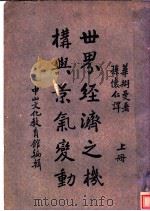 華格曼著
蔣懷仁譯
世界經濟之機
構與景氣變動
上冊
中山文化教育館編輯